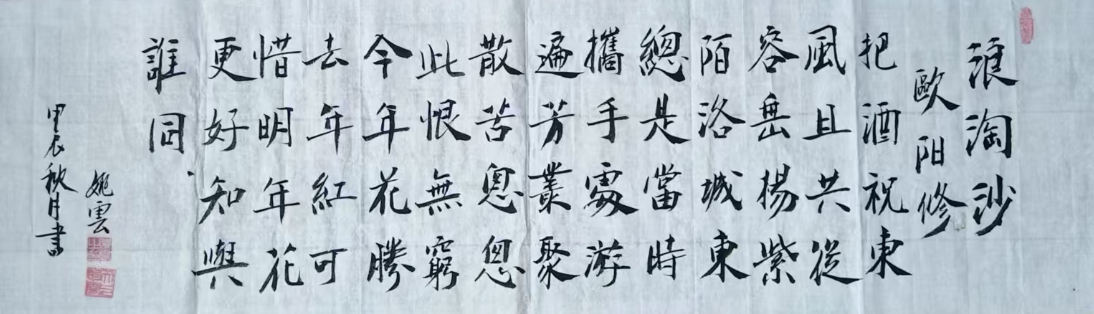 浪淘沙
歐阳修
把酒祝東
風且共從
容垂楊紫
陌洛城東
總是當時
攜手處游
遍芳叢聚
散苦悤悤
此恨無窮
今年花勝
去年紅可
惜明年花
更好知與
誰同
姚雲
甲辰秋月書